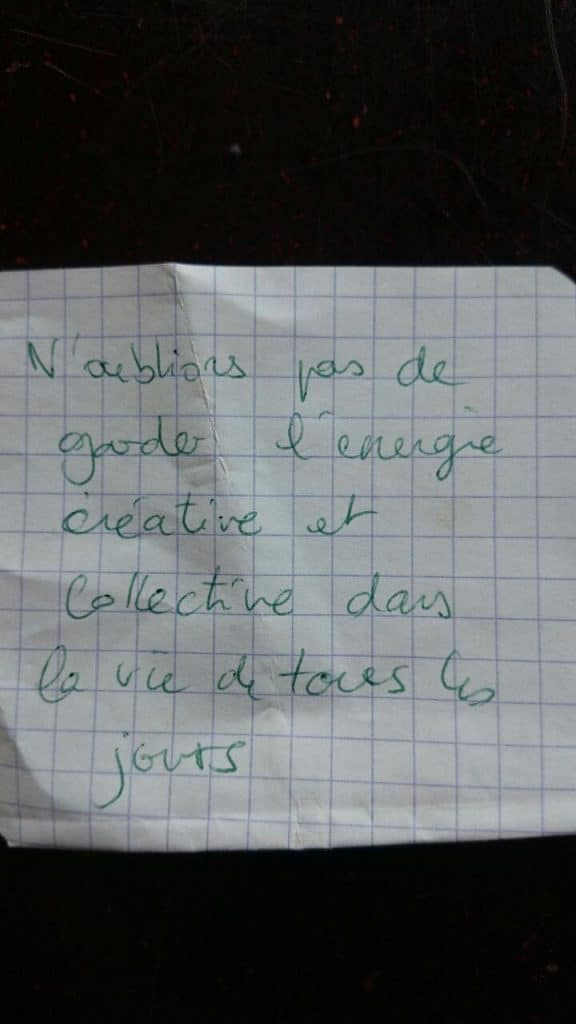 N'oublions pas de
garder l'énergie
créative et
Collective dans
la vie de tous les
jours